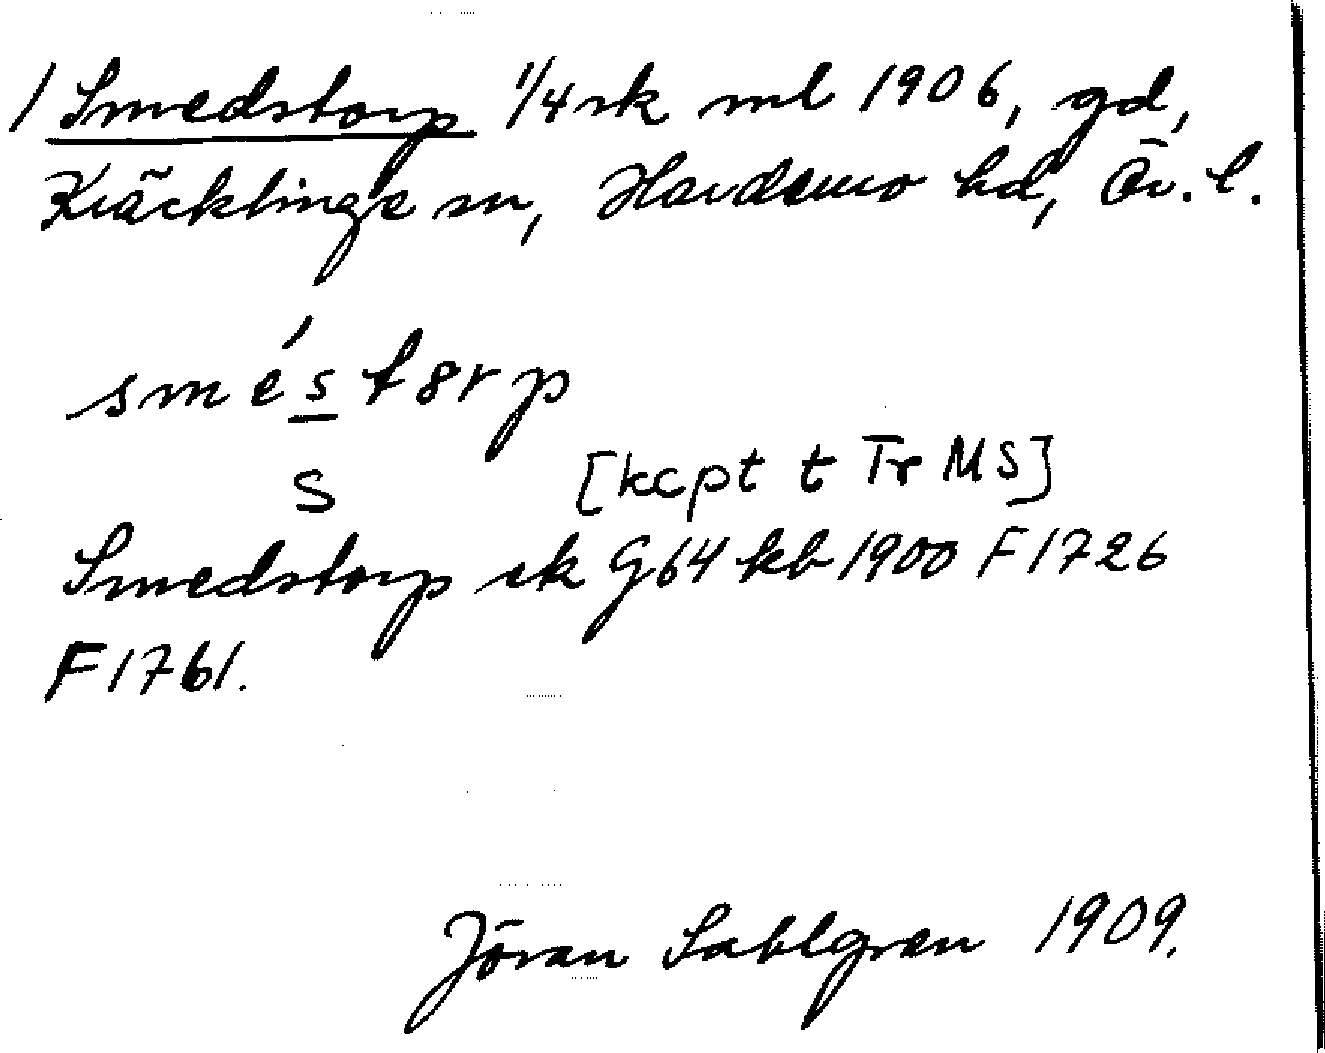 1 Smedstorp 1/4 sk ml 1906, gd,
Kräcklinge sn, Hardemo hd, Ör. l.
smés t8rp
s [kcpt t Tr MS]
Smedstorp sk G64 kb 1900 F1726
F1761.
Jöran Sahlgren 1909.